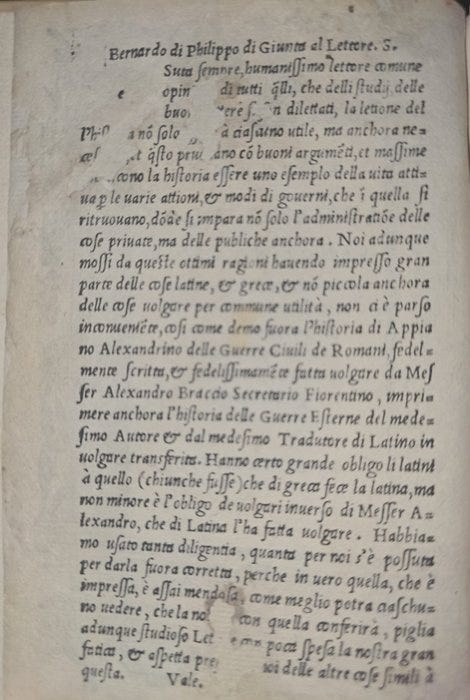 Bernardo di Philippo di Giunta al Lettore. S.
Suta sempre, humanissimo lettore comune
e opin di tutti q̃lli, che delli studij delle
buo dilettati, la letione del
nõ solo à ciascuno utile, ma anchora ne=
et q̃sto cõ buoni argumẽti, et massime
cono la historia essere uno esemplo della uita atti=
ua p̱ le uarie attioni, & modi di gouerni, che ĩ quella si
ritruouano, dõde si impara nõ solo l'administratiõe delle
cose priuate, ma delle publiche anchora. Noi adunque
mossi da queste ottimi ragioni hauendo impresso gran
parte delle cose latine, & grece, & nõ piccola anchora
delle cose uolgare per commune utilità, non ci è parso
inconueniẽte, cosi come demo fuora l'historia di Appia
no Alexandrino delle Guerre Ciuili de Romani, fedel=
mente scritta, & fedelissimamẽte fatta uolgare da Mes
ser Alexandro Braccio Secretario Fiorentino, impri=
mere anchora l'historia delle Guerre Esterne del mede=
simo Autore & dal medesimo Tradutore di Latino in
uolgare transferita. Hanno certo grande obligo li latini
à quello (chiunche fusse) che di greca fece la latina, ma
non minore è l'obligo de uolgari inuerso di Messer A=
lexandro, che di Latina l'ha fatta uolgare. Habbia=
mo usato tanta diligentia, quanta per noi s'è possuta
per darla fuora corretta, perche in uero quella, che è
impressa, è assai mendosa, come meglio potra ciaschu=
no uedere, che la con quella conferirà, piglia
adunque studioso Let con poca spesa la nostra gran
fatica, & aspetta delle altre cose simili à
questa. Vale.